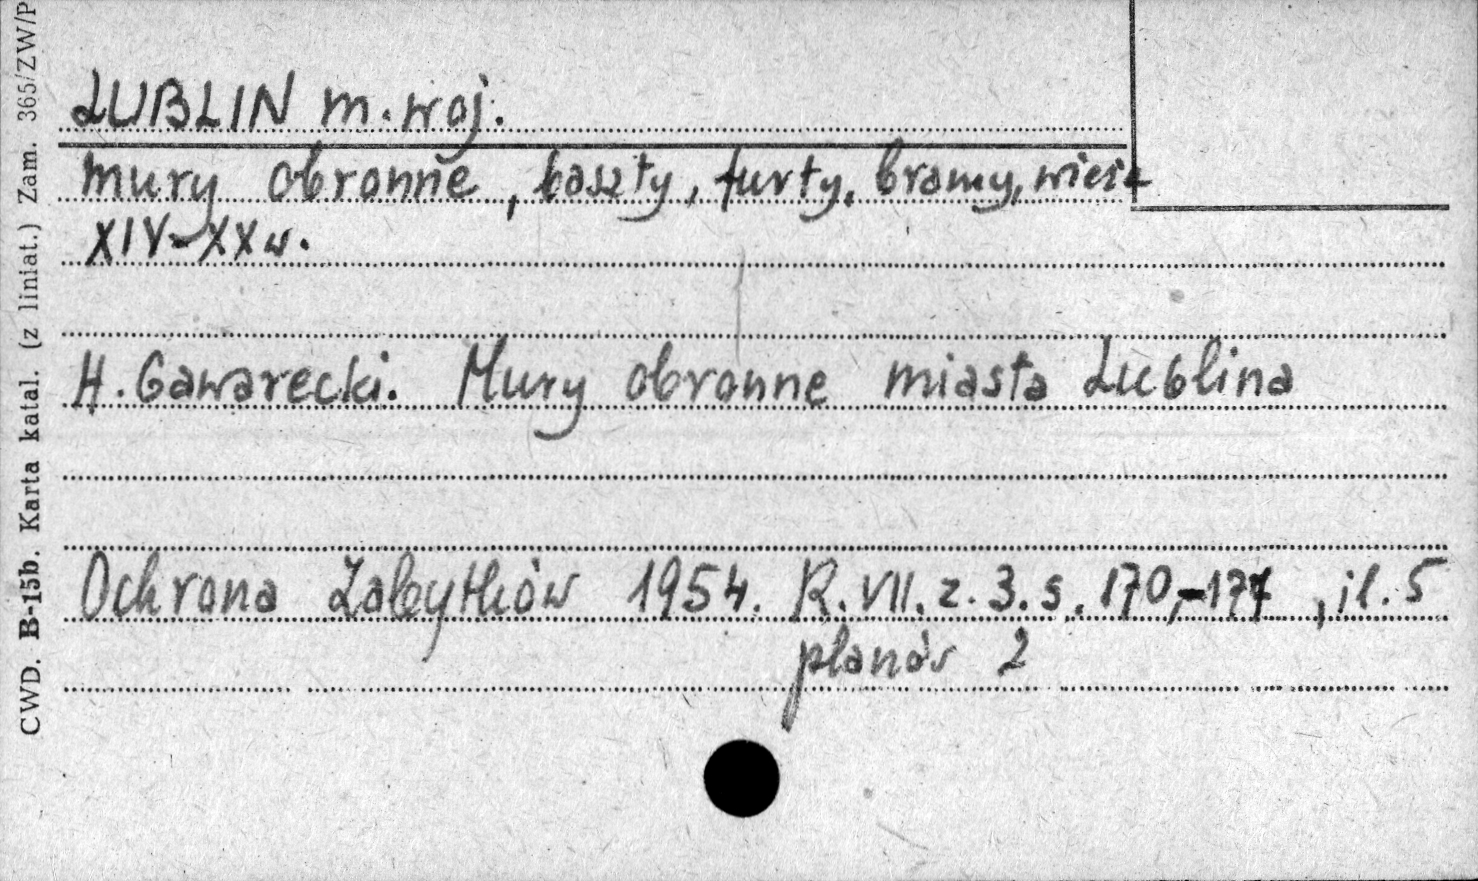 LUBLIN m. woj.
mury obronne, baszty, furty, bramy, wieża
XIV-XX w.
H. Gawarecki. Mury obronne miasta Lublina
Ochrona Zabytków 1954. R. VII. z. 3. s. 170,-177, il. 5
planów 2
CWD. B-15b. Karta katal. (z liniat.) Zam. 365/ZW/P